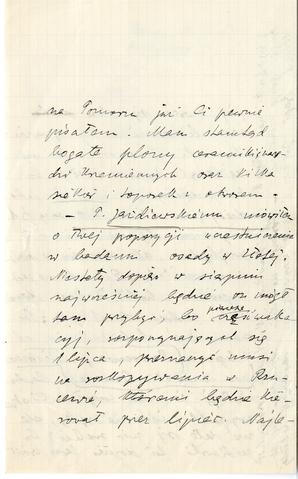 na Pomorzu już Ci pewnie
pisałem. Mam stamtąd
bogate plony ceramiki, narzę-
dzi krzemiennych oraz kilka
siekier i toporek z okresem.
— P. Jażdżewskiemu mówiłem
o Twej propozycji uczestniczenia
w badaniu osady w Złotej.
Niestety dopiero w sierpniu
najwcześniej będzie on mógł
tam przybyć, bo pierwszą część waka
cyj, rozpoczynających się
1 lipca, przeznaczyć musi
na rozkopywania w Rzu-
cewie, którymi będzie kie-
rował przez lipiec. Najle-